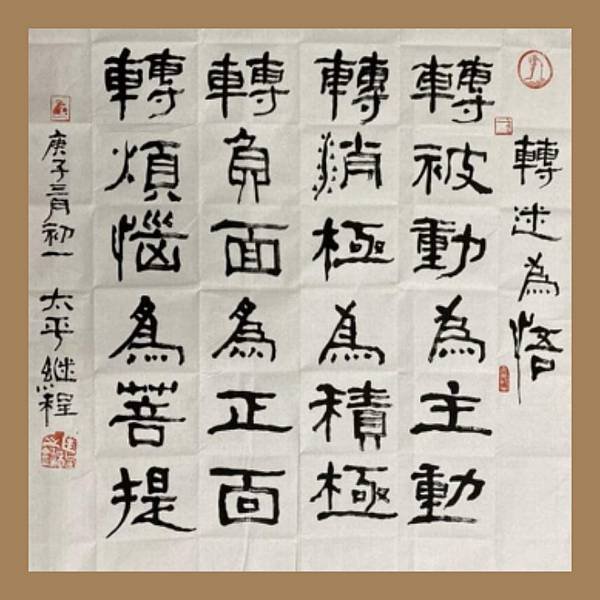 轉迷為悟
轉被動為主動
轉消極為積極
轉負面為正面
轉煩惱為菩提
庚子二月初一 太平继程